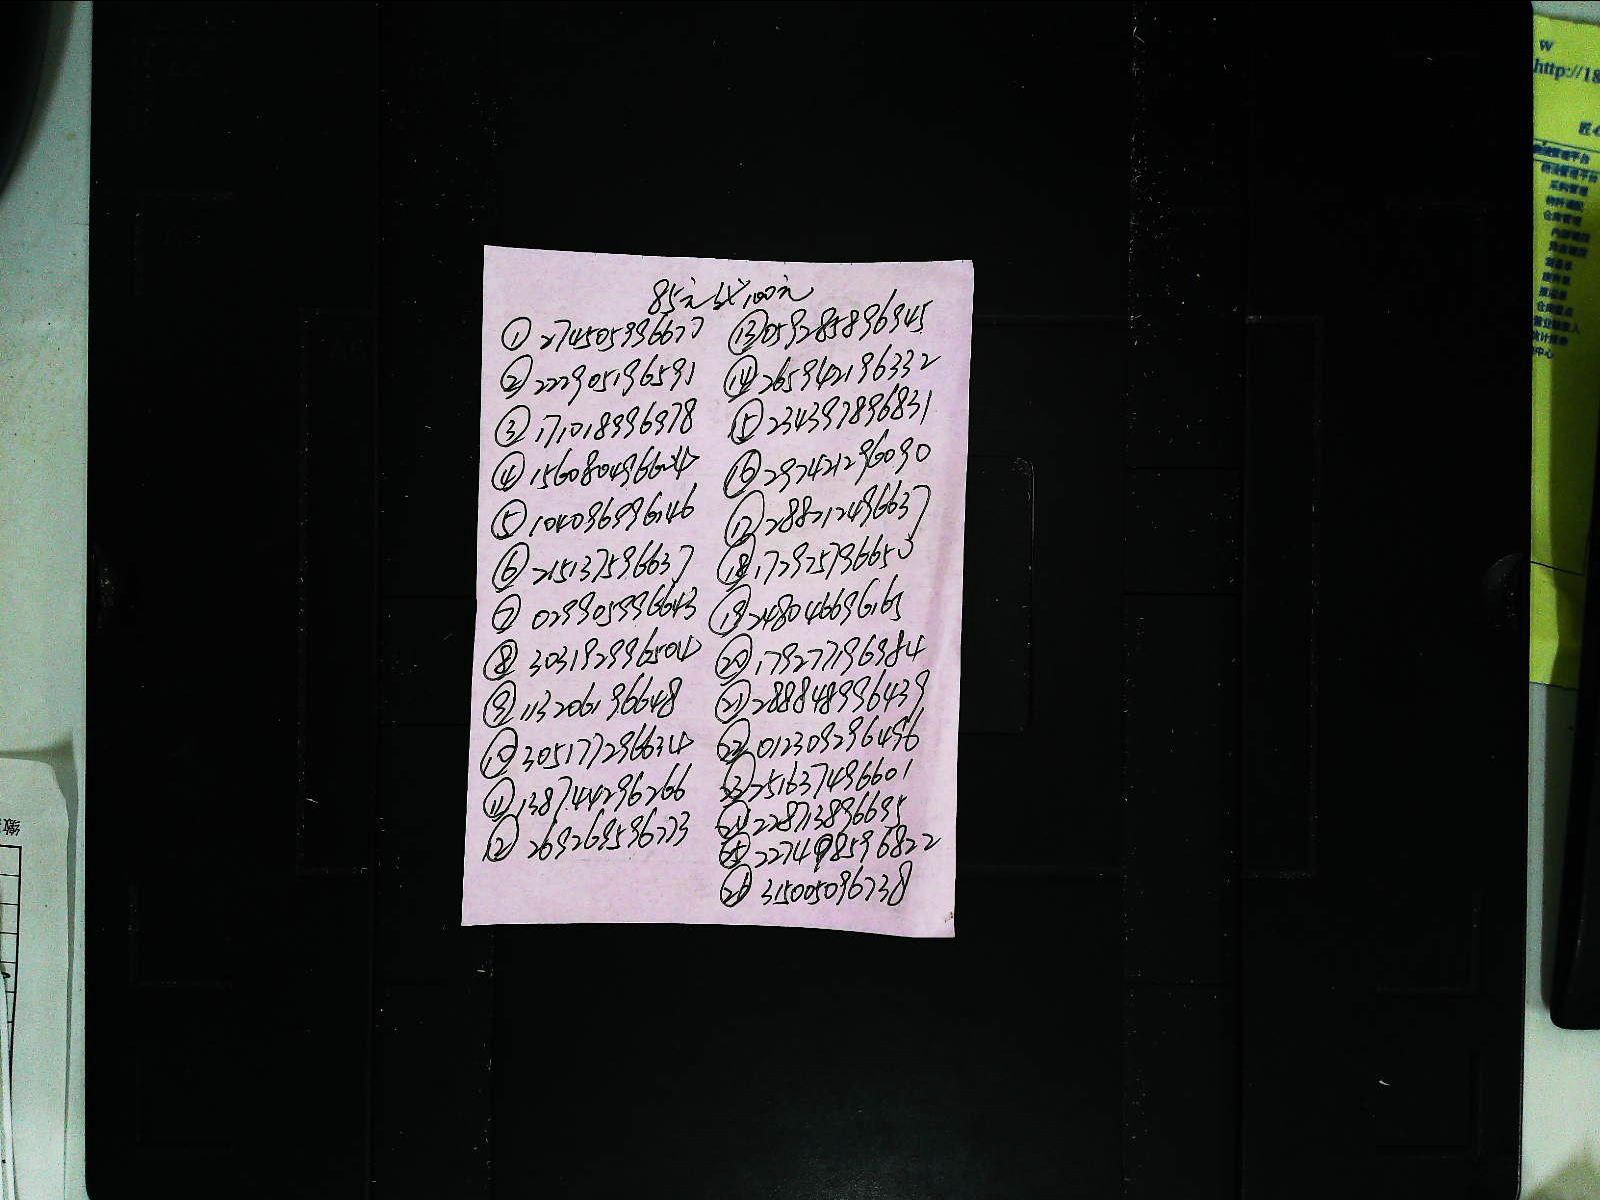 85元 100元
① 274505996677
② 222905196591
③ 171018996978
④ 156080496624
⑤ 104096996146
⑥ 215137596637
⑦ 029905996643
⑧ 303192996504
⑨ 113206196648
⑩ 305177296634
⑪ 138744296266
⑫ 269269596273
⑬ 059285896945
⑭ 265942196332
⑮ 234397896831
⑯ 292421296090
⑰ 288212496637
⑱ 172925796650
⑲ 248046696165
⑳ 179277196984
㉑ 288848996439
㉒ 012309296496
㉓ 251637496601
㉔ 228713896695
㉕ 227498596822
㉖ 315005096738
w
http://18
匠心
物流管理平台
采购管理
仓库管理
中心